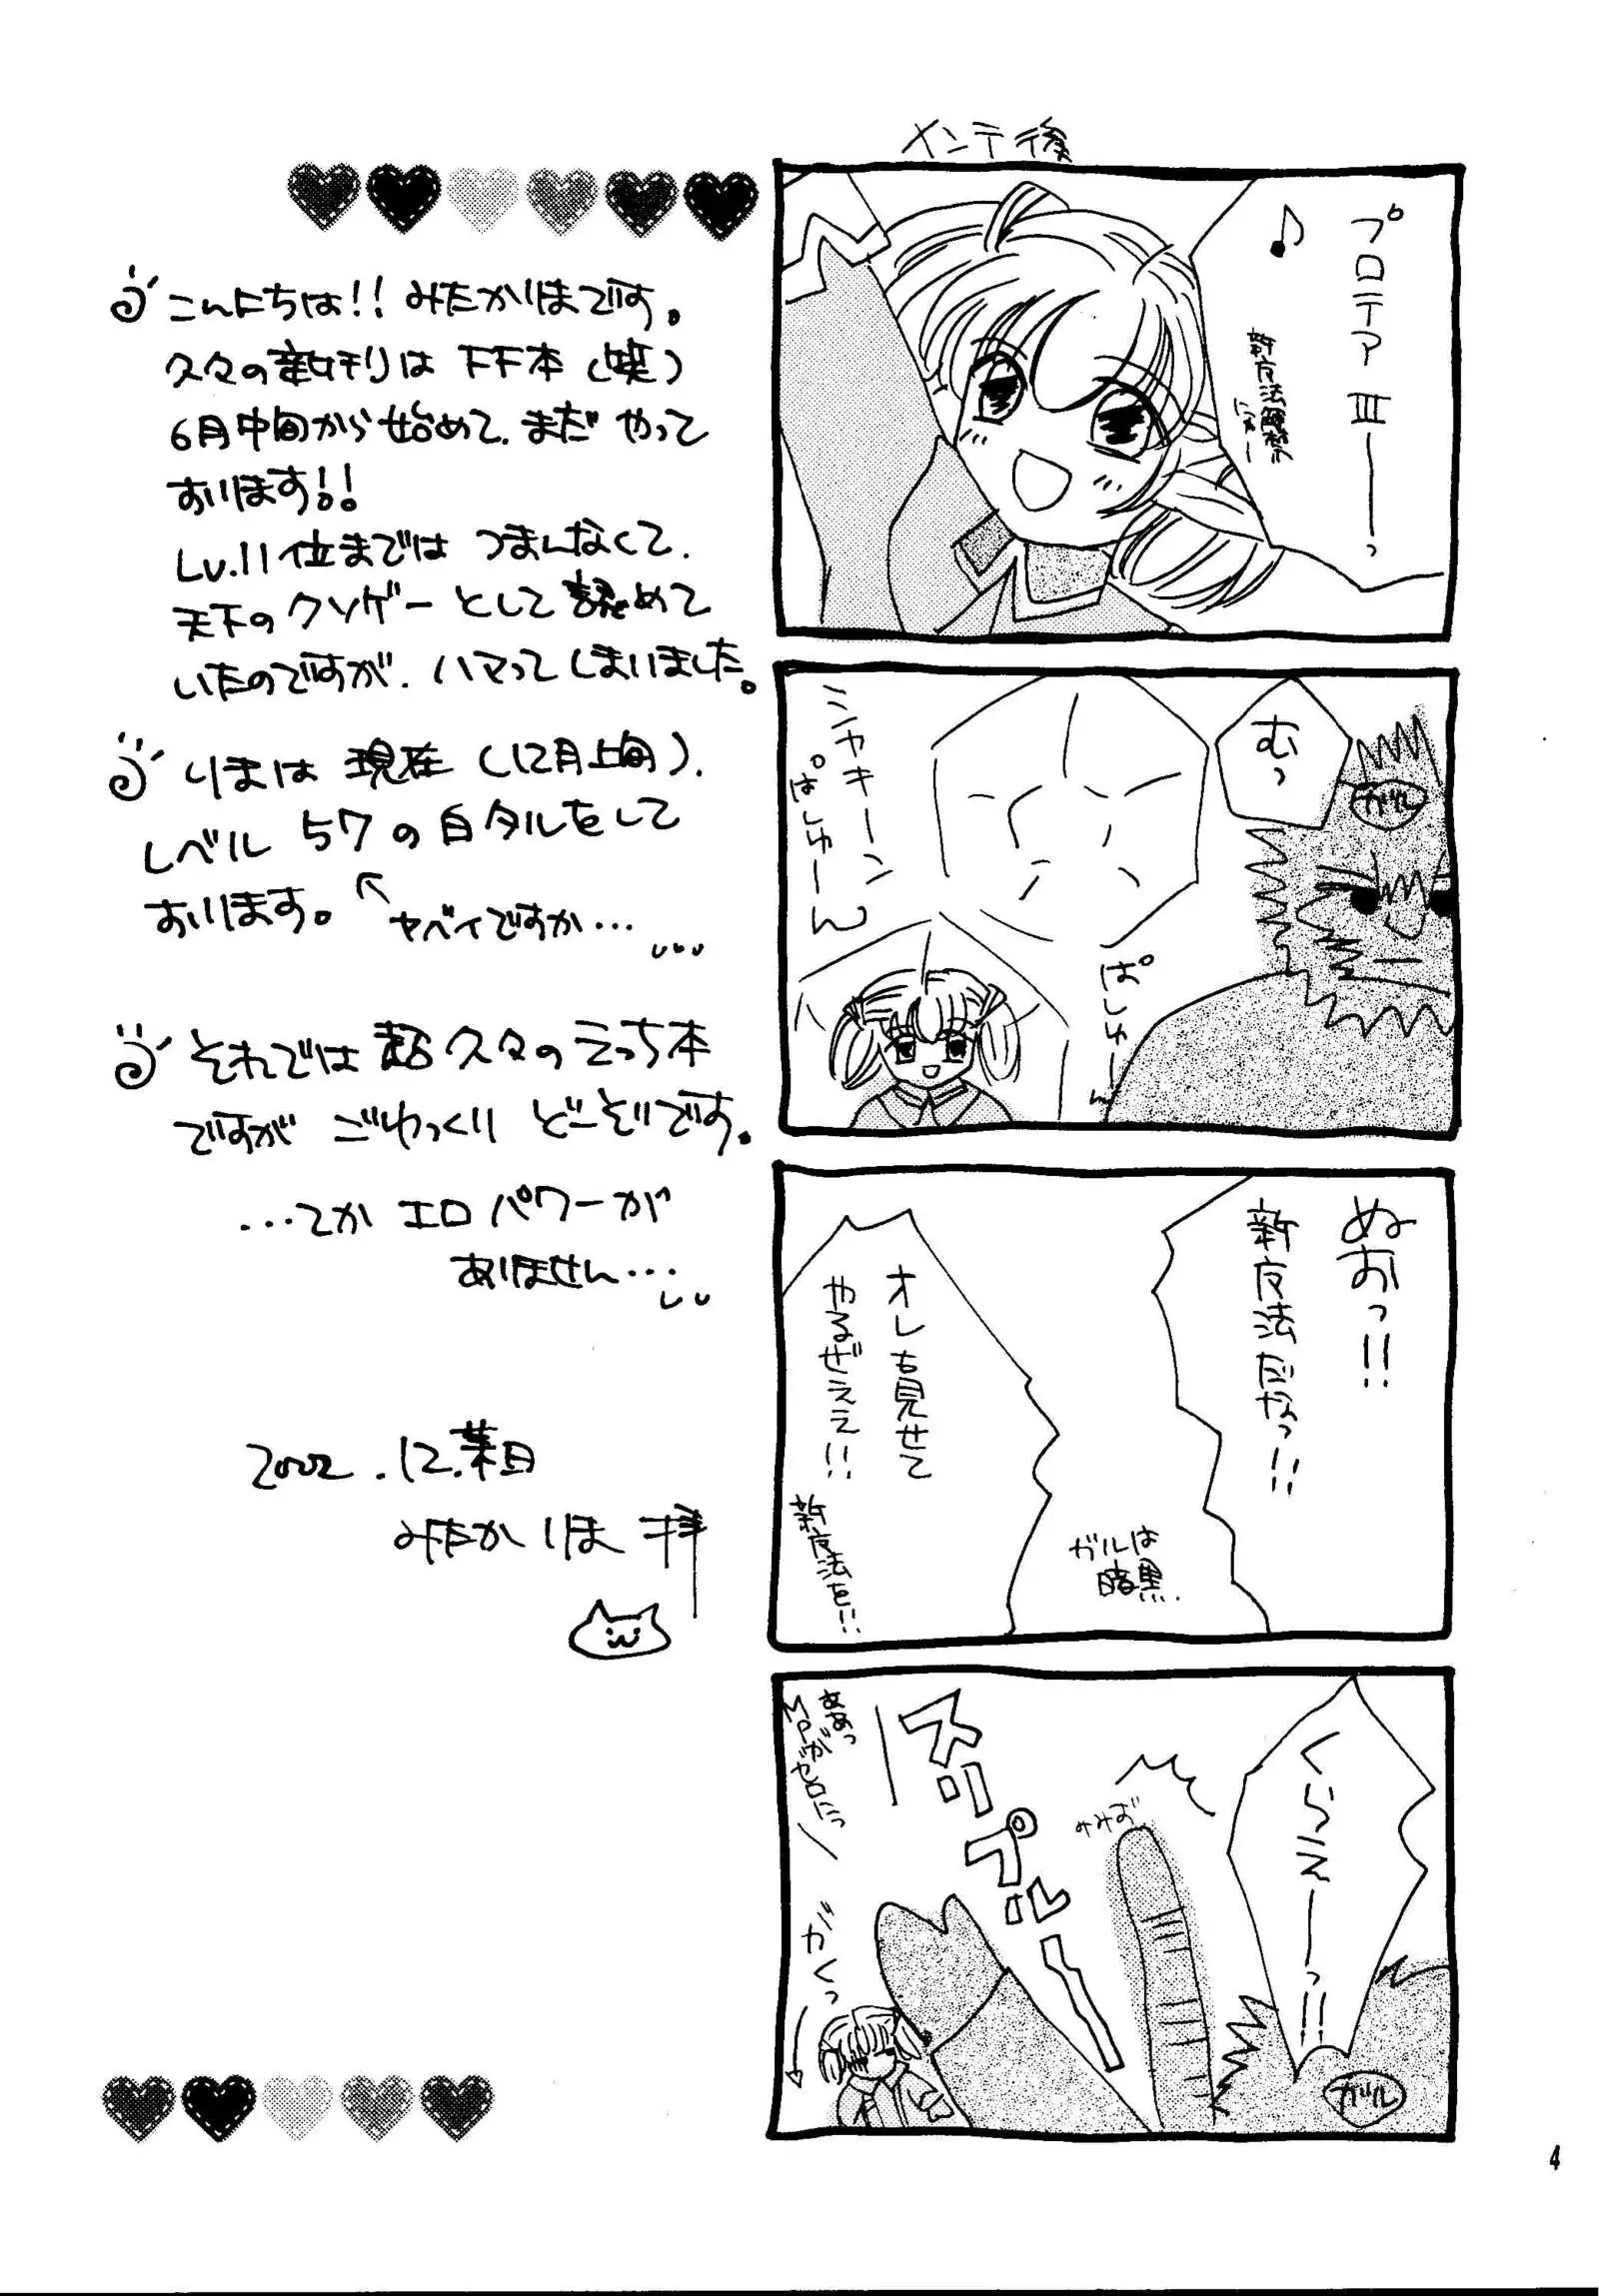 こんにちは!! みたかりほです。
久々の新刊はFF本(笑)
6月中旬から始めて、まだ やって
おります!!
Lv.11位までは つまんなくて、
天下のクソゲーとして認めて
いたのですが、ハマってしまいました。
りほは 現在(12月上旬)、
レベル 57の白タルをして
おります。
←ヤバイですか…
それでは 超久々のえっち本
ですが ごゆっくり どーぞです。
…てか エロパワーが
ありません…
2002.12.某日
みたかりほ 拝
メンテ後
プロテアⅢーーっ
♪
新魔法解禁
にてー
むっ
ガル
シャキーン
ぱしゅーん
ぱしゅーん
ぬおっ!!
新魔法だなっ!!
ガルは
暗黒.
オレも見せて
やるぜええ!!
新魔法を!!
くらえーーっ!!
ガル
スリプルー
ああっ
MPがゼロにっ
がくっ
4